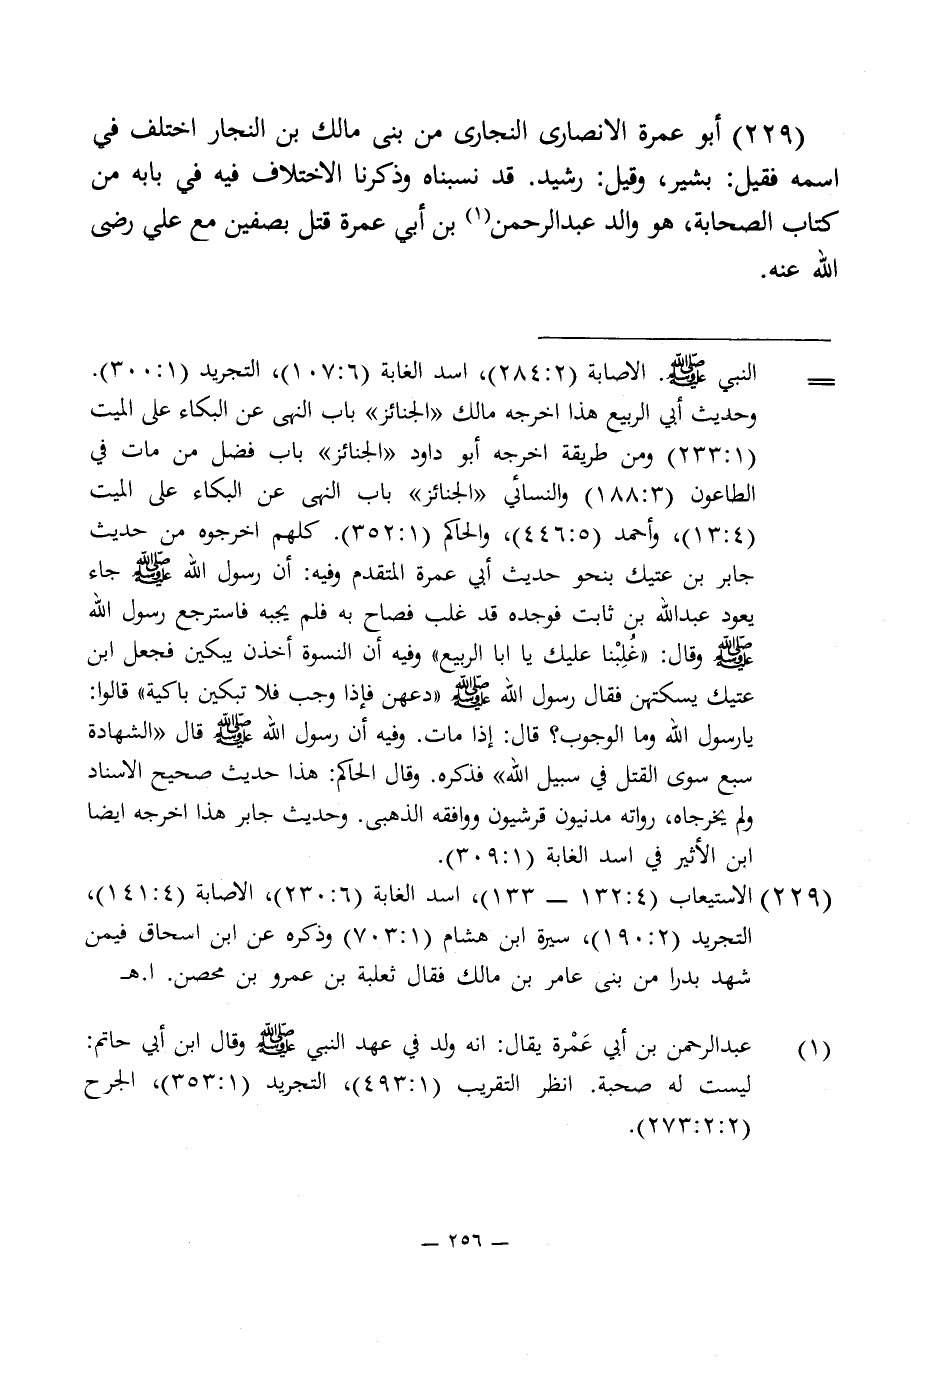 (٢٢٩) أبو عمرة الانصارى النجارى من بنى مالك بن النجار اختلف في
اسمه فقيل: بشير، وقيل: رشيد. قد نسبناه وذكرنا الاختلاف فيه في بابه من
كتاب الصحابة، هو والد عبدالرحمن(١) بن أبي عمرة قتل بصفين مع علي رضى
الله عنه.
= النبي ﷺ. الاصابة (٢٨٤:٢)، اسد الغابة (١٠٧:٦)، التجريد (٣٠٠:١).
وحديث أبي الربيع هذا اخرجه مالك «الجنائز» باب النهى عن البكاء على الميت
(٢٣٣:١) ومن طريقة اخرجه أبو داود «الجنائز» باب فضل من مات في
الطاعون (١٨٨:٣) والنسائي «الجنائز» باب النهى عن البكاء على الميت
(١٣:٤)، وأحمد (٤٤٦:٥)، والحاكم (٣٥٢:١). كلهم اخرجوه من حديث
جابر بن عتيك بنحو حديث أبي عمرة المتقدم وفيه: أن رسول الله ﷺ جاء
يعود عبدالله بن ثابت فوجده قد غلب فصاح به فلم يجبه فاسترجع رسول الله
ﷺ وقال: «غُلِبْنا عليك يا ابا الربيع» وفيه أن النسوة أخذن يبكين فجعل ابن
عتيك يسكتهن فقال رسول الله ﷺ «دعهن فإذا وجب فلا تبكين باكية» قالوا:
يارسول الله وما الوجوب؟ قال: إذا مات. وفيه أن رسول الله ﷺ قال «الشهادة
سبع سوى القتل في سبيل الله» فذكره. وقال الحاكم: هذا حديث صحيح الاسناد
ولم يخرجاه، رواته مدنيون قرشيون ووافقه الذهبى. وحديث جابر هذا اخرجه ايضا
ابن الأثير في اسد الغابة (٣٠٩:١).
(٢٢٩) الاستيعاب (١٣٢:٤ — ١٣٣)، اسد الغابة (٢٣٠:٦)، الاصابة (١٤١:٤)،
التجريد (١٩٠:٢)، سيرة ابن هشام (٧٠٣:١) وذكره عن ابن اسحاق فيمن
شهد بدرا من بنى عامر بن مالك فقال ثعلبة بن عمرو بن محصن. ا.هـ
(١) عبدالرحمن بن أبي عَمْرة يقال: انه ولد في عهد النبي ﷺ وقال ابن أبي حاتم:
ليست له صحبة. انظر التقريب (٤٩٣:١)، التجريد (٣٥٣:١)، الجرح
(٢٧٣:٢:٢).
— ٢٥٦ —